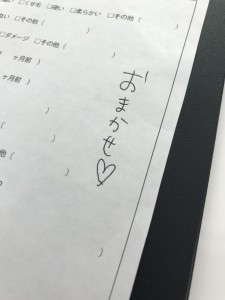 □くせ毛 □硬い □柔らかい □その他(
ない □その他(
□ダメージ □その他(
)
ヶ月前 )
ヶ月前 )
)
)
他( )
)
おまかせ♡